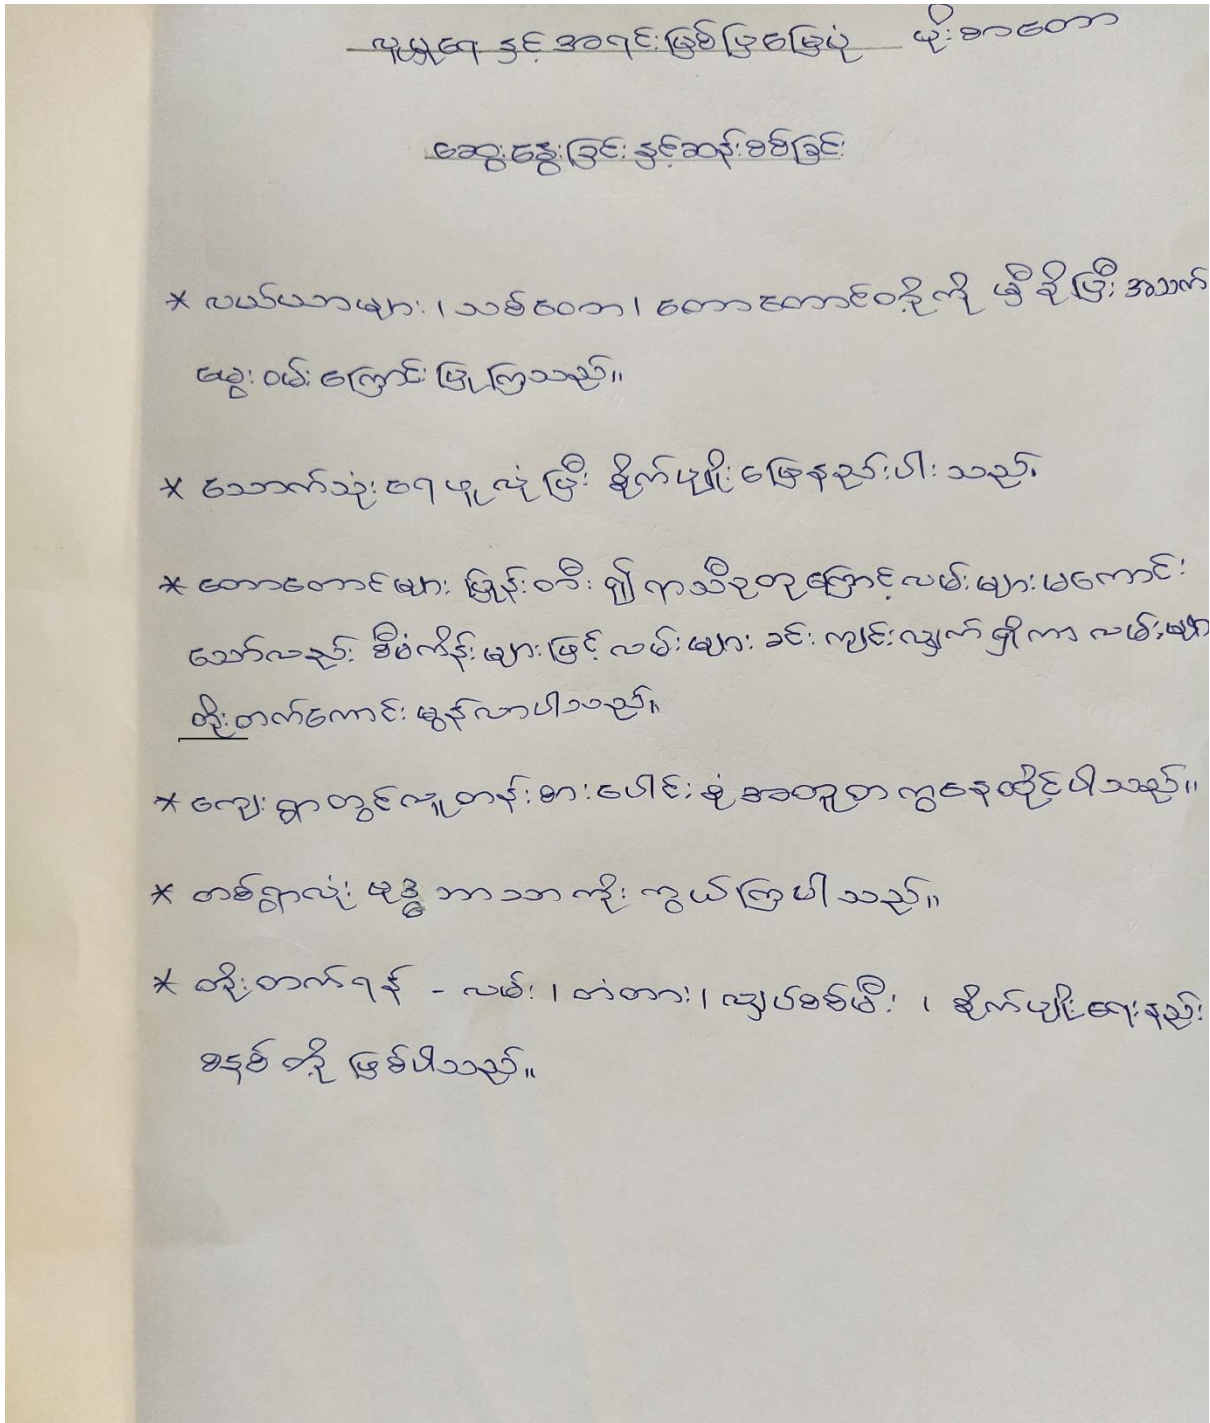 လူမှုရေး နှင့် အရင်းမြစ်ပြမြေပုံ မိုးစာတော
ဆွေးနွေးခြင်း နှင့်ဆန်းစစ်ခြင်း
* လယ်ယာများ၊ သစ်တော၊ တောတောင်တို့ကို မှီခိုပြီး အသက်
မွေး ဝမ်း ကြောင်း ပြု ကြသည်။
* သောက်သုံးရေ ဖူလုံ ပြီး စိုက်ပျိုး မြေနည်းပါးသည်။
* တောတောင်များ ပြုန်းတီး ၍ ရာသီဥတုကြောင့် လမ်းများမကောင်း
သော်လည်း စီမံကိန်းများဖြင့် လမ်းများ ခင်းကျင်းလျှက် ရှိကာ လမ်းများ
တိုးတက်ကောင်းမွန်လာပါသည်။
* ကျေးရွာတွင်လူတန်းစားပေါင်းစုံ အတူတကွနေထိုင်ပါသည်။
* တစ်ရွာလုံး ဗုဒ္ဓ ဘာသာ ကိုးကွယ်ကြပါသည်။
* တိုးတက်ရန် - လမ်း၊ တံတား၊ လျှပ်စစ်မီး ၊ စိုက်ပျိုးရေးနည်း
စနစ် တို့ ဖြစ်ပါသည်။